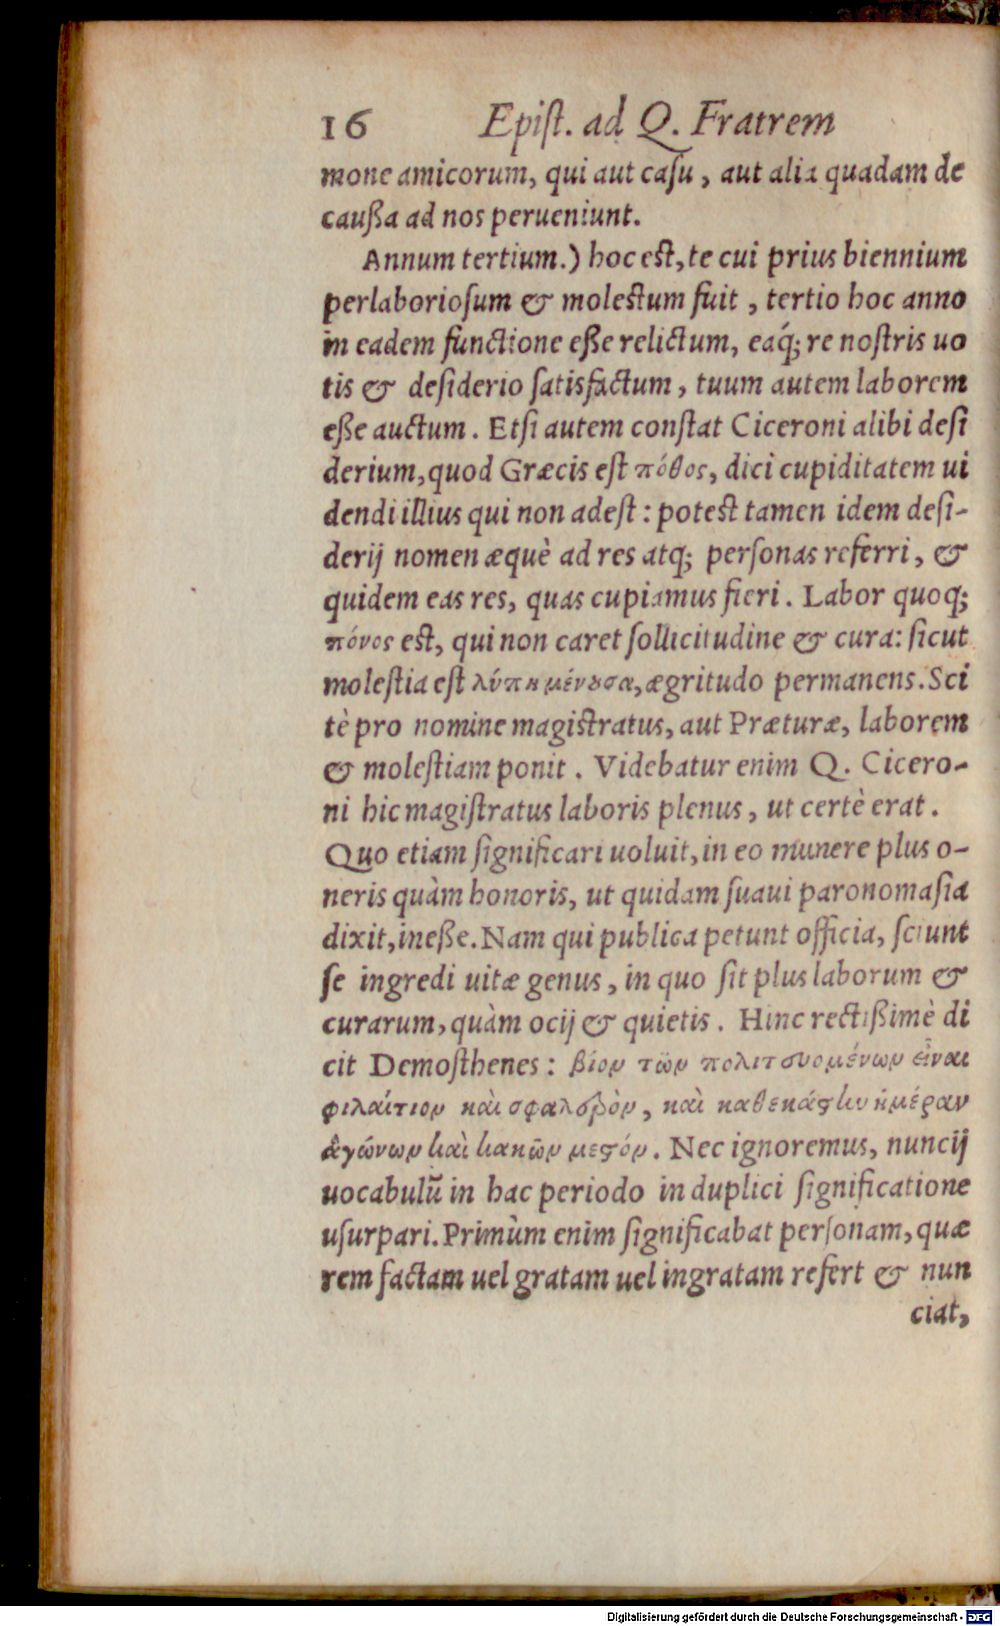 16 Epiſt. ad Q. Fratrem
mone amicorum, qui aut caſu, aut alia quadam de
cauſſa ad nos perueniunt.
Annum tertium.) hoc est, te cui prius biennium
perlaborioſum & molestum fuit, tertio hoc anno
in eadem functione eſſe relictum, eaq́; re noſtris uo
tis & deſiderio ſatisfactum, tuum autem laborem
eſſe auctum. Etſi autem conſtat Ciceroni alibi deſi
derium, quod Græcis eſt πόθος, dici cupiditatem ui
dendi illius qui non adeſt: potest tamen idem deſi-
derij nomen æquè ad res atq; perſonas referri, &
quidem eas res, quas cupiamus fieri. Labor quoq;
πόνος est, qui non caret ſollicitudine & cura: ſicut
moleſtia eſt λύπη μένουσα, ægritudo permanens. Sci
tè pro nomine magistratus, aut Præturæ, laborem
& moleſtiam ponit. Videbatur enim Q. Cicero-
ni hic magiſtratus laboris plenus, ut certè erat.
Quo etiam ſignificari uoluit, in eo munere plus o-
neris quàm honoris, ut quidam ſuaui paronomaſia
dixit, ineſſe. Nam qui publica petunt officia, ſciunt
ſe ingredi uitæ genus, in quo ſit plus laborum &
curarum, quàm ocij & quietis. Hinc rectiſſimè di
cit Demoſthenes: βίον τῶν πολιτευομένων εἶναι
φιλαίτιον καὶ σφαλερὸν, καὶ καθεκάστην ἡμέραν
ἀγώνων καὶ κακῶν μεστόν. Nec ignoremus, nuncij
uocabulū in hac periodo in duplici ſignificatione
uſurpari. Primùm enim ſignificabat perſonam, quæ
rem factam uel gratam uel ingratam refert & nun
ciat,
Digitalisierung gefördert durch die Deutsche Forschungsgemeinschaft - DFG